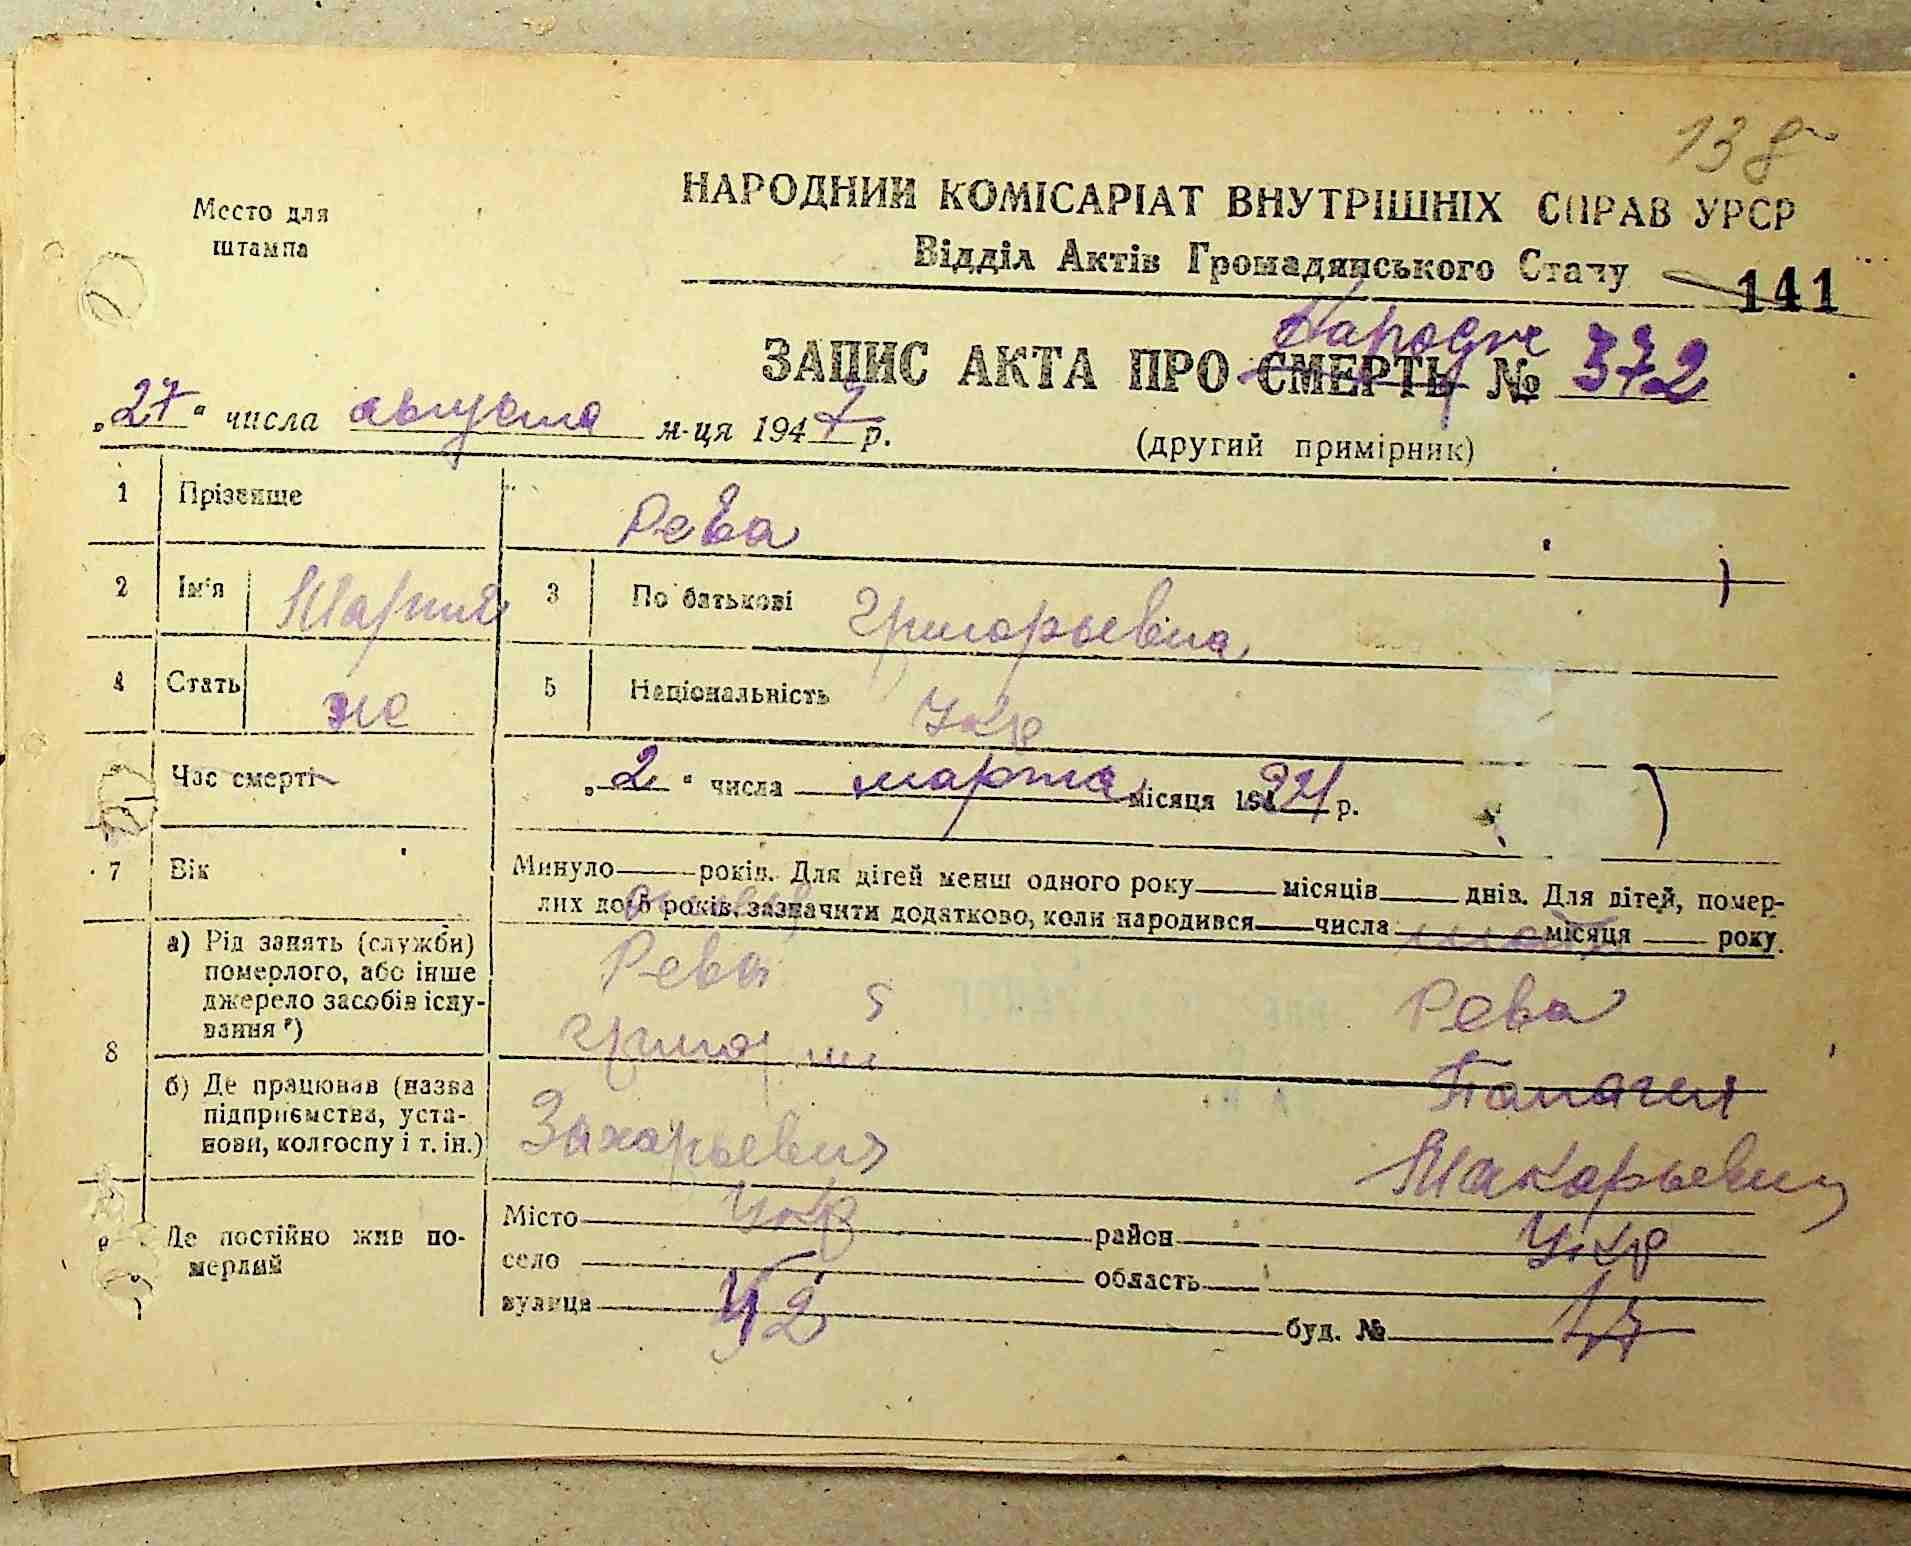 138
Место для
штампа
НАРОДНИЙ КОМІСАРІАТ ВНУТРІШНІХ СПРАВ УРСР
Відділ Актів Громадянського Стану
141
ЗАПИС АКТА ПРО СМЕРТЬ № 372
„27“ числа августа м-ця 1947 р.
(другий примірник)
1 Прізвище Рева
2 Ім'я Мария 3 По батькові Григорьевна
4 Стать же 5 Національність Укр
Час смерті „2“ числа марта місяця 1924 р.
7 Вік Минуло — років. Для дітей менш одного року — місяців — днів. Для дітей, помер-
лих до 5 років, зазначити додатково, коли народився — числа — місяця — року.
8 а) Рід занять (служби)
померлого, або інше
джерело засобів існу-
вання *)
Рева Рева
б) Де працював (назва
підприємства, уста-
нови, колгоспу і т. ін.)
Захарьевич Макарьевн
Де постійно жив по-
мерлий
Місто Укр район Укр
село область
вулиця 52 буд. № 47